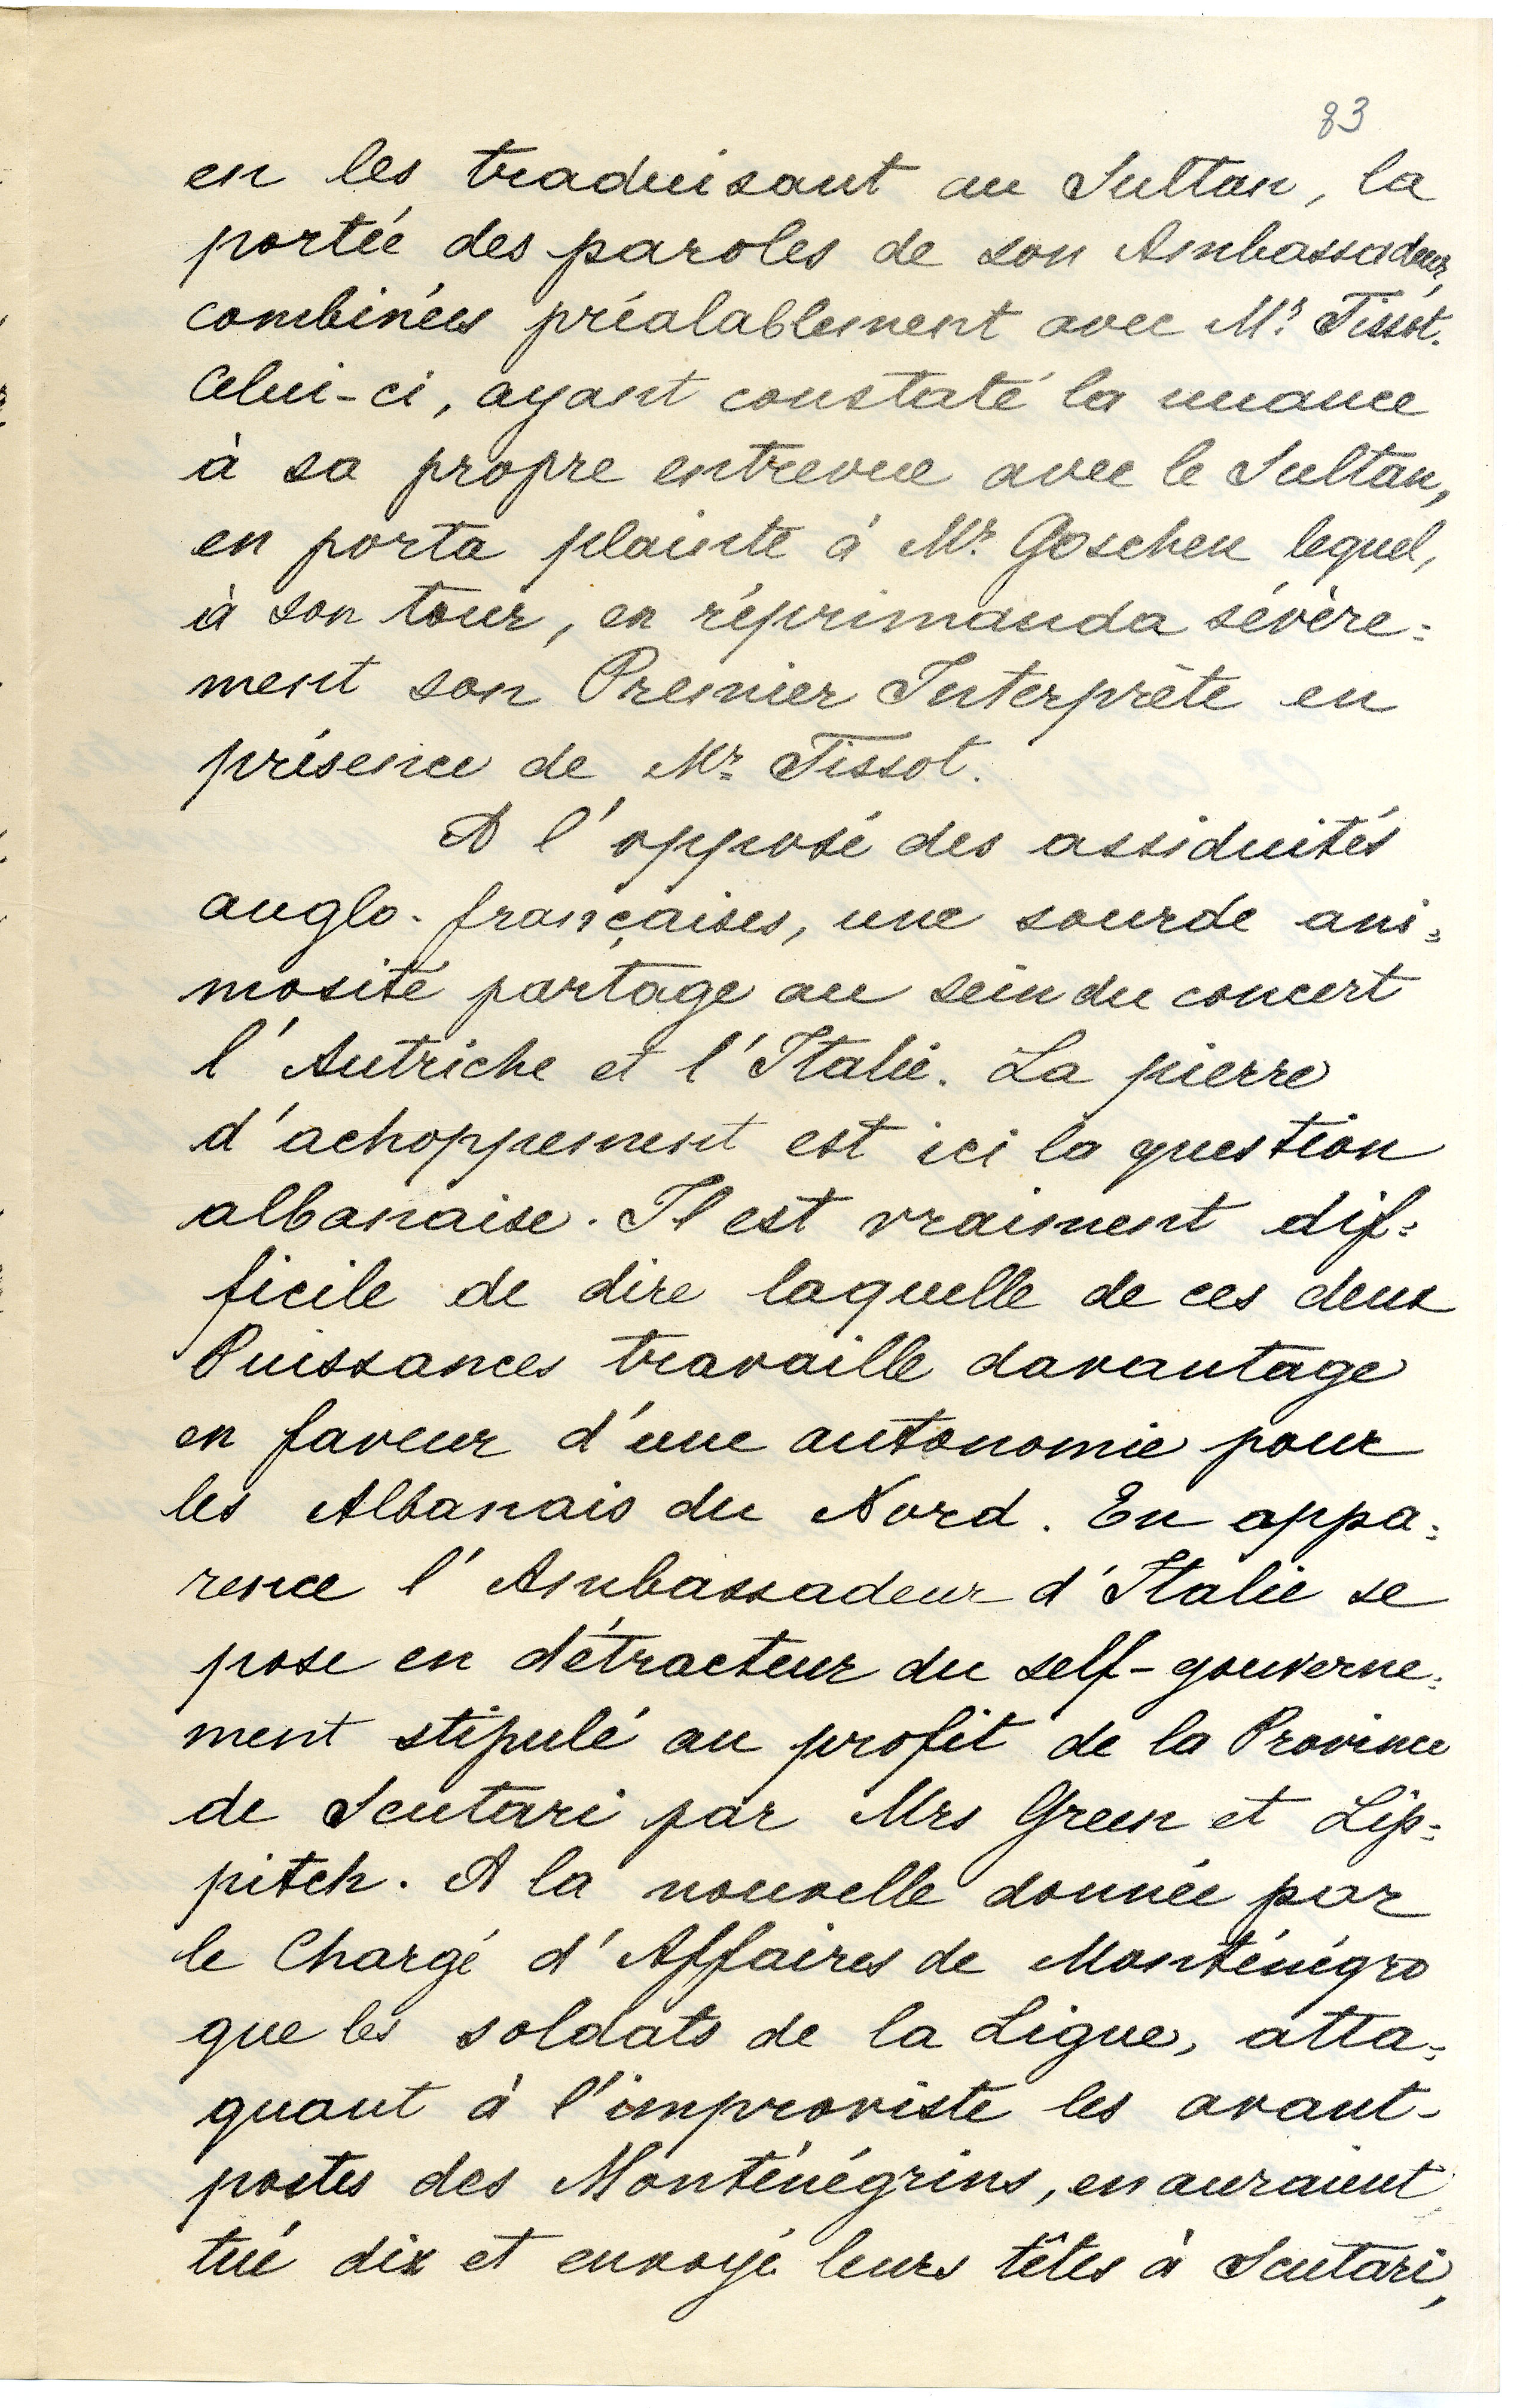 83
en les traduisant au Sultan, la
portée des paroles de son Ambassadeur,
combinées préalablement avec Mr. Tissot.
Celui-ci, ayant constaté la nuance
à sa propre entrevue avec le Sultan,
en porta plainte à Mr. Goschen lequel,
à son tour, en réprimanda sévère=
ment son Premier Interprète en
présence de Mr. Tissot.
A l'opposé des assiduités
anglo-françaises, une sourde ani=
mosité partage au sein du concert
l'Autriche et l'Italie. La pierre
d'achoppement est ici la question
albanaise. Il est vraiment dif=
ficile de dire laquelle de ces deux
Puissances travaille davantage
en faveur d'une autonomie pour
les Albanais du Nord. En appa=
rence l'Ambassadeur d'Italie se
pose en détracteur du self-gouverne=
ment stipulé au profit de la Province
de Scutari par Mrs Green et Lip=
pitch. A la nouvelle donnée par
le Chargé d'Affaires de Monténégro
que les soldats de la Ligue, atta=
quant à l'improviste les avant-
postes des Monténégrins, en auraient
tué dix et envoyé leurs têtes à Scutari,